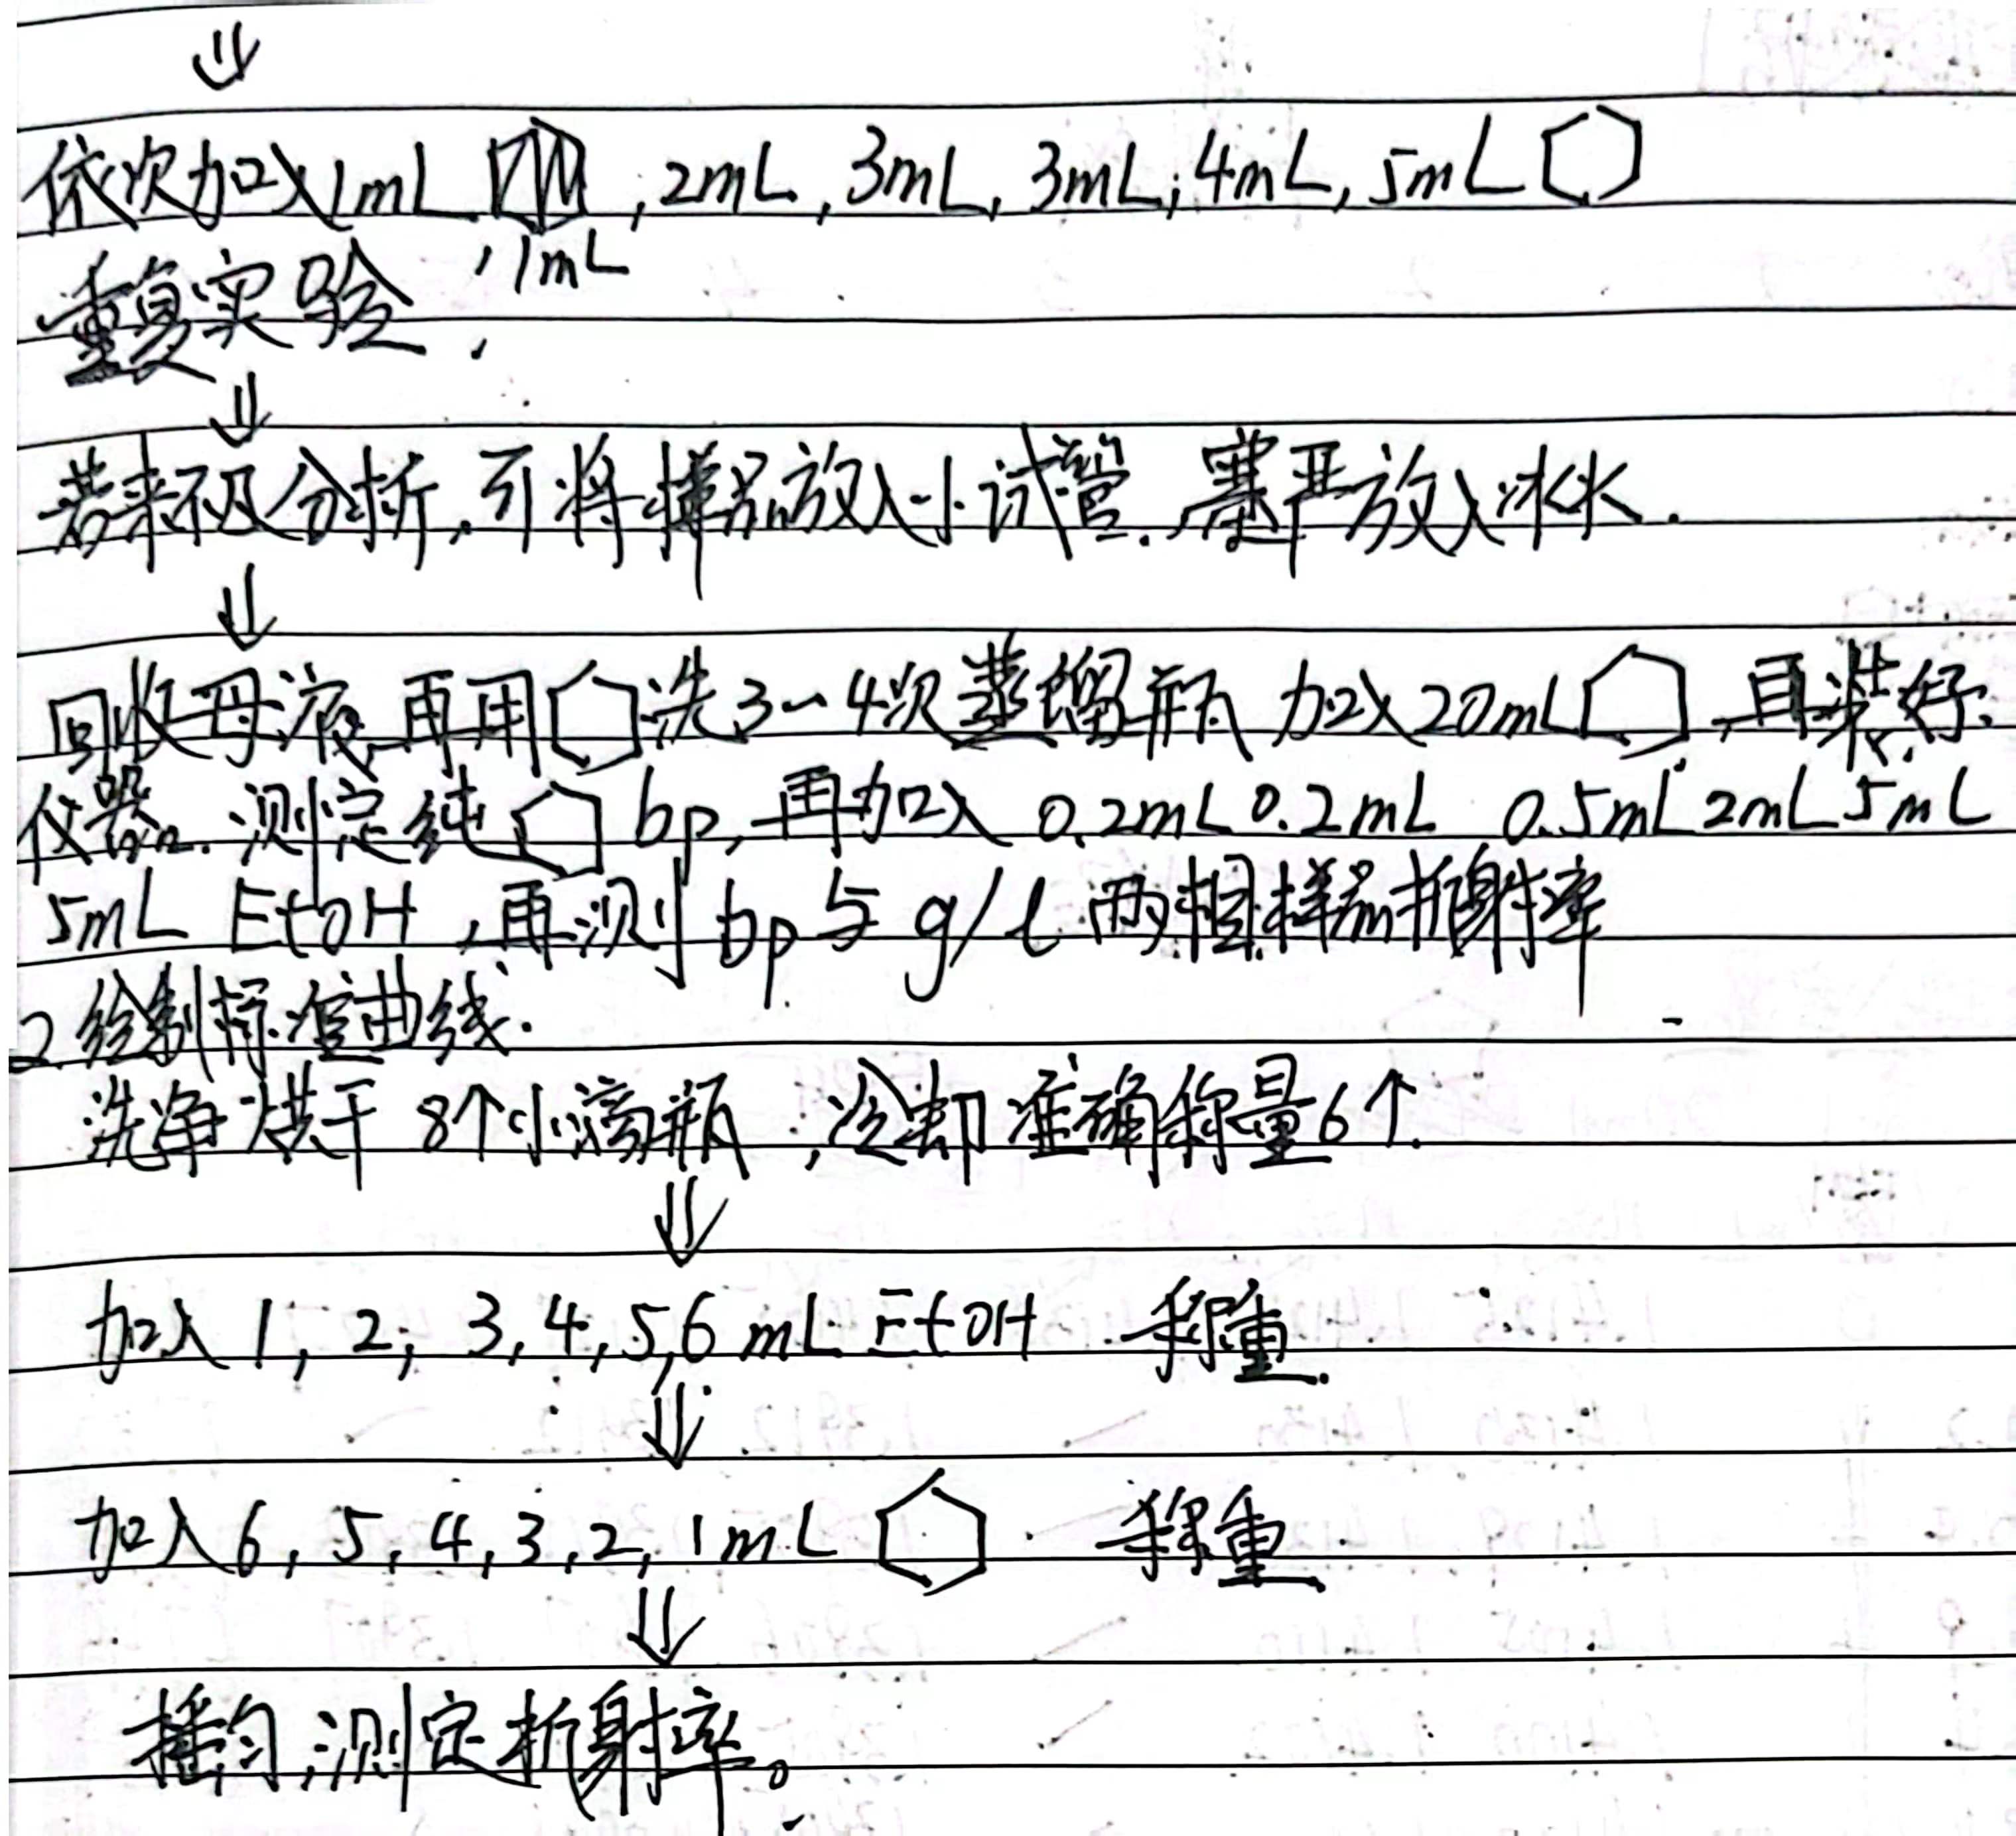 ⇓
依次加入1mL, 1mL, 2mL, 3mL, 3mL, 4mL, 5mL ⬡
重复实验.
⇓
若来不及分析,可将样品放入小试管,塞严放入冰水.
⇓
回收母液,再用⬡洗3~4次蒸馏瓶 加入20mL⬡,再装好
仪器.测定纯⬡ bp,再加入 0.2mL 0.2mL 0.5mL 2mL 5mL
5mL EtOH,再测 bp与 g/l 两相样品折射率
2.绘制标准曲线.
洗净烘干 8个小滴瓶,冷却 准确称量6个.
⇓
加入 1, 2, 3, 4, 5, 6 mL EtOH 称重.
⇓
加入 6, 5, 4, 3, 2, 1 mL ⬡ 称重.
⇓
摇匀,测定折射率。